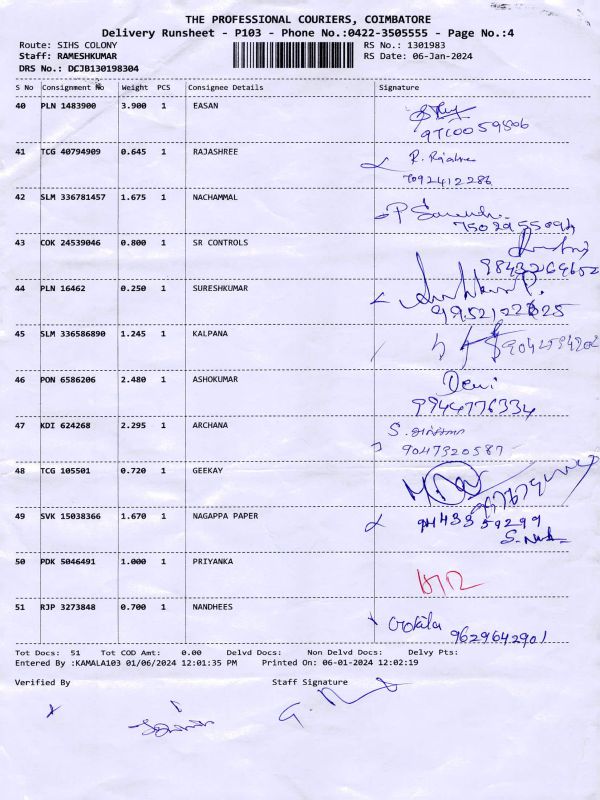 THE PROFESSIONAL COURIERS, COIMBATORE
Delivery Runsheet - P103 - Phone No.:0422-3505555 - Page No.:4
Route: SIHS COLONY RS No.: 1301983
Staff: RAMESHKUMAR RS Date: 06-Jan-2024
DRS No.: DCJB130198304
S No Consignment No Weight PCS Consignee Details Signature
40 PLN 1483900 3.900 1 EASAN
41 TCG 40794909 0.645 1 RAJASHREE
7092412286
42 SLM 336781457 1.675 1 NACHAMMAL
43 COK 24539046 0.800 1 SR CONTROLS
44 PLN 16462 0.250 1 SURESHKUMAR
45 SLM 336586890 1.245 1 KALPANA
46 PON 6586206 2.480 1 ASHOKUMAR
Devi
9944776334
47 KDI 624268 2.295 1 ARCHANA
9047320587
48 TCG 105501 0.720 1 GEEKAY
49 SVK 15038366 1.670 1 NAGAPPA PAPER
50 PDK 5046491 1.000 1 PRIYANKA
51 RJP 3273848 0.700 1 NANDHEES
Gokila
9629642901
Tot Docs: 51 Tot COD Amt: 0.00 Delvd Docs: Non Delvd Docs: Delvy Pts:
Entered By :KAMALA103 01/06/2024 12:01:35 PM Printed On: 06-01-2024 12:02:19
Verified By Staff Signature